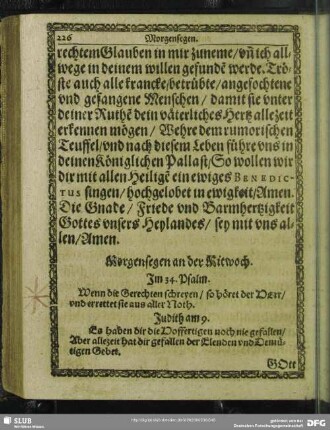 226 Morgensegen.
rechtem Glauben in mir zuneme/ vñ ich all-
wege in deinem willen gefundē werde. Trö-
ste auch alle krancke/ betrübte/ angefochtene
vnd gefangene Menschen/ damit sie vnter
deiner Ruthē dein väterliches Hertz allezeit
erkennen mögen/ Wehre dem rumorischen
Teuffel/ vnd nach diesem Leben führe vns in
deinen Königlichen Pallast/ So wollen wir
dir mit allen Heiligē ein ewiges BENEDIC-
TUS singen/ hochgelobet in ewigkeit/ Amen.
Die Gnade/ Friede vnd Barmhertzigkeit
Gottes vnsers Heylandes/ sey mit vns al-
len/ Amen.
Morgensegen an der Mitwoch.
Im 34. Psalm.
Wenn die Gerechten schreyen/ so höret der HErr/
vnd errettet sie aus aller Noth.
Judith am 9.
Es haben dir die Hoffertigen noch nie gefallen/
Aber allezeit hat dir gefallen der Elenden vnd Demü-
tigen Gebet.
GOtt
SLUB
Wir führen Wissen.
gefördert von der
Deutschen Forschungsgemeinschaft
DFG